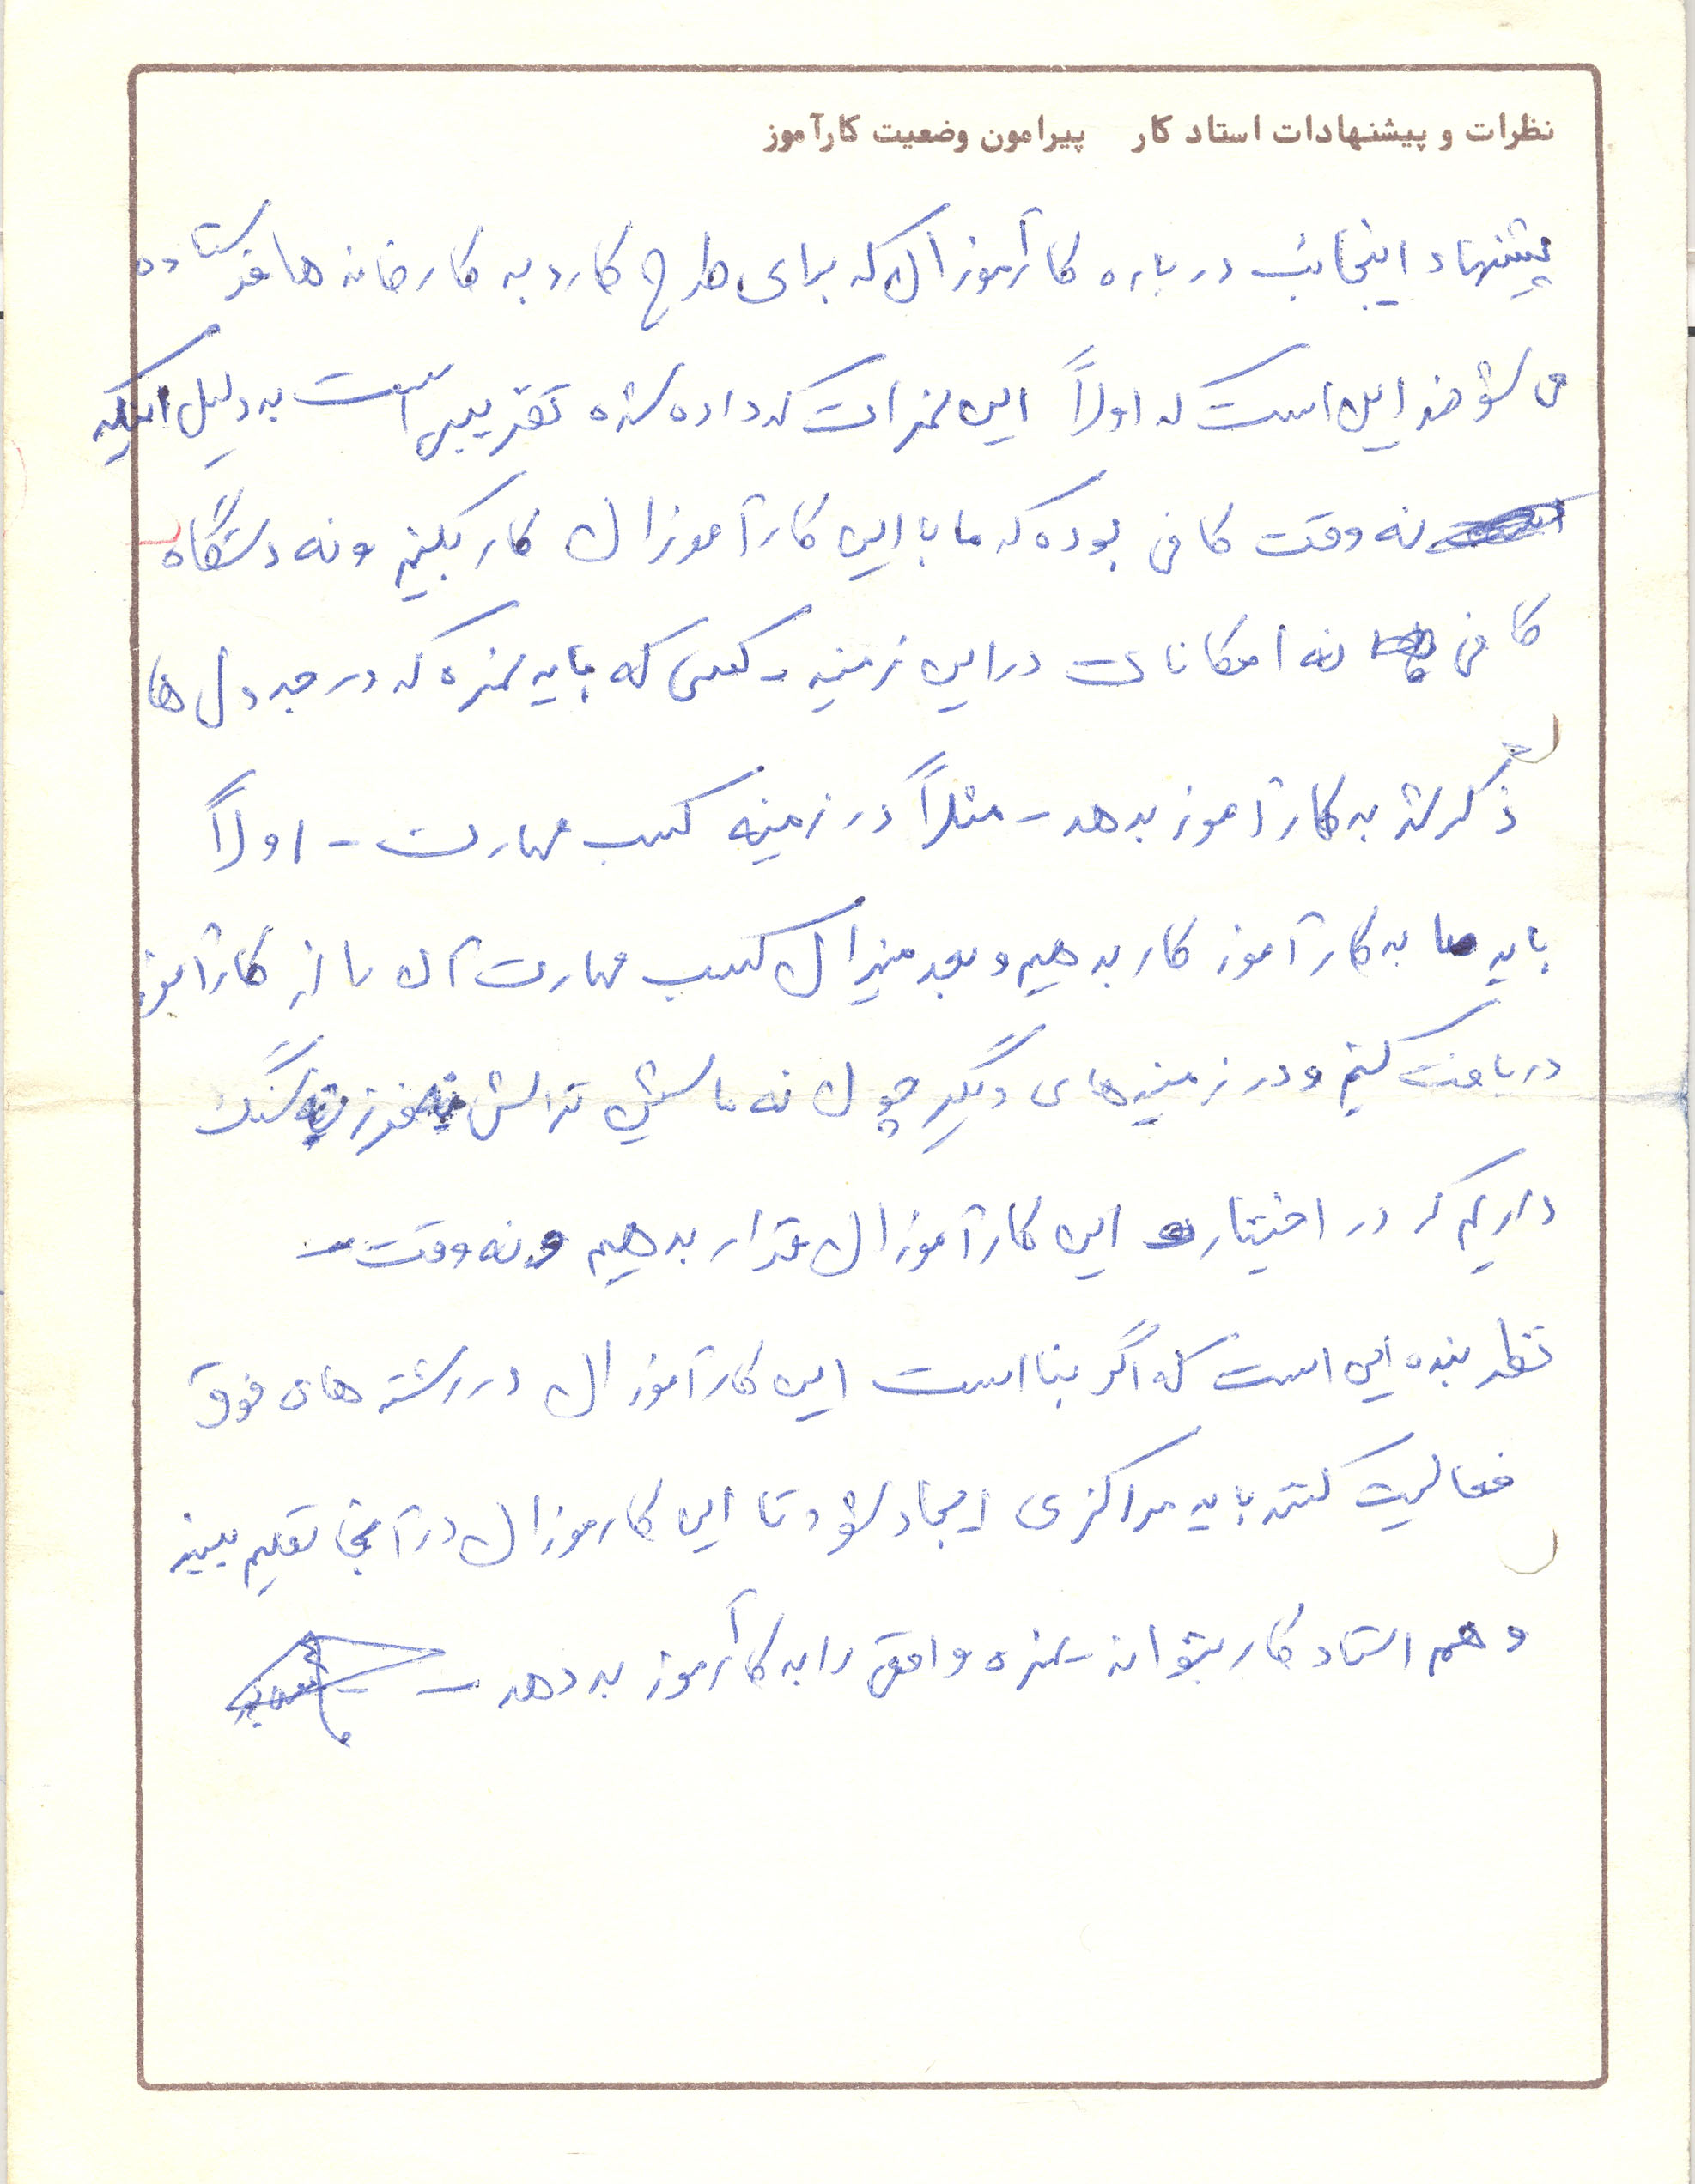 نظرات و پیشنهادات استاد کار پیرامون وضعیت کارآموز
پیشنهاد اینجانب درباره کارآموزان که برای طرح کارد به کارخانه ها فرستاده
می شوند این است که اولاً این نمرات که داده شده تقریبی است به دلیل اینکه
نه وقت کافی بوده که ما با این کارآموزان کار بکنیم و نه دستگاه
کافی نه امکانات در این زمینه - کسی که باید نمره که در جدول ها
ذکر شد به کارآموز بدهد - مثلاً در زمینه کسب مهارت - اولاً
باید ما به کارآموز کار بدهیم و بعد میزان کسب مهارت آن را از کارآموز
دریافت کنیم و در زمینه های دیگر چون نه ماشین تراش نه فرز نه سنگ
داریم که در اختیار این کارآموزان قرار بدهیم و نه وقت -
نظر بنده این است که اگر بنا است این کارآموزان در رشته های فوق
فعالیت کنند باید مراکزی ایجاد شود تا این کارموزان در آنجا تعلیم ببیند
و هم استاد کار بتواند نمره واقعی را به کارآموز بدهد -